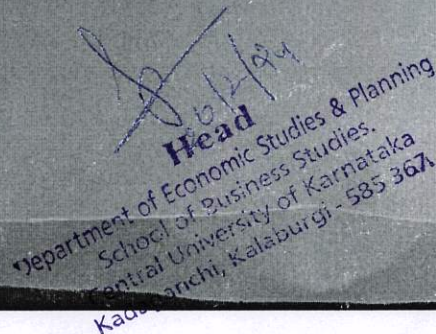 Head
Department of Economic Studies & Planning
School of Business Studies.
Central University of Karnataka
Kadaganchi, Kalaburgi - 585 367.